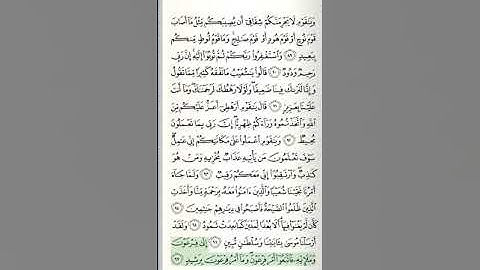 وَيَٰقَوْمِ لَا يَجْرِمَنَّكُمْ شِقَاقِيٓ أَن يُصِيبَكُم مِّثْلُ مَآ أَصَابَ
قَوْمَ نُوحٍ أَوْ قَوْمَ هُودٍ أَوْ قَوْمَ صَٰلِحٍ ۚ وَمَا قَوْمُ لُوطٍ مِّنكُم
بِبَعِيدٍ ٨٩ وَٱسْتَغْفِرُوا۟ رَبَّكُمْ ثُمَّ تُوبُوٓا۟ إِلَيْهِ ۚ إِنَّ رَبِّي
رَحِيمٌ وَدُودٌ ٩٠ قَالُوا۟ يَٰشُعَيْبُ مَا نَفْقَهُ كَثِيرًا مِّمَّا تَقُولُ
وَإِنَّا لَنَرَىٰكَ فِينَا ضَعِيفًا ۖ وَلَوْلَا رَهْطُكَ لَرَجَمْنَٰكَ ۖ وَمَآ أَنتَ
عَلَيْنَا بِعَزِيزٍ ٩١ قَالَ يَٰقَوْمِ أَرَهْطِيٓ أَعَزُّ عَلَيْكُم مِّنَ
ٱللَّهِ وَٱتَّخَذْتُمُوهُ وَرَآءَكُمْ ظِهْرِيًّا ۖ إِنَّ رَبِّي بِمَا تَعْمَلُونَ
مُحِيطٌ ٩٢ وَيَٰقَوْمِ ٱعْمَلُوا۟ عَلَىٰ مَكَانَتِكُمْ إِنِّي عَٰمِلٌ ۖ
سَوْفَ تَعْلَمُونَ مَن يَأْتِيهِ عَذَابٌ يُخْزِيهِ وَمَنْ هُوَ
كَٰذِبٌ ۖ وَٱرْتَقِبُوٓا۟ إِنِّي مَعَكُمْ رَقِيبٌ ٩٣ وَلَمَّا جَآءَ
أَمْرُنَا نَجَّيْنَا شُعَيْبًا وَٱلَّذِينَ ءَامَنُوا۟ مَعَهُۥ بِرَحْمَةٍ مِّنَّا وَأَخَذَتِ
ٱلَّذِينَ ظَلَمُوا۟ ٱلصَّيْحَةُ فَأَصْبَحُوا۟ فِي دِيَٰرِهِمْ جَٰثِمِينَ ٩٤
كَأَن لَّمْ يَغْنَوْا۟ فِيهَآ ۗ أَلَا بُعْدًا لِّمَدْيَنَ كَمَا بَعِدَتْ ثَمُودُ ٩٥ وَلَقَدْ
أَرْسَلْنَا مُوسَىٰ بِـَٔايَٰتِنَا وَسُلْطَٰنٍ مُّبِينٍ ٩٦ إِلَىٰ فِرْعَوْنَ
وَمَلَإِي۟هِۦ فَٱتَّبَعُوٓا۟ أَمْرَ فِرْعَوْنَ ۖ وَمَآ أَمْرُ فِرْعَوْنَ بِرَشِيدٍ ٩٧